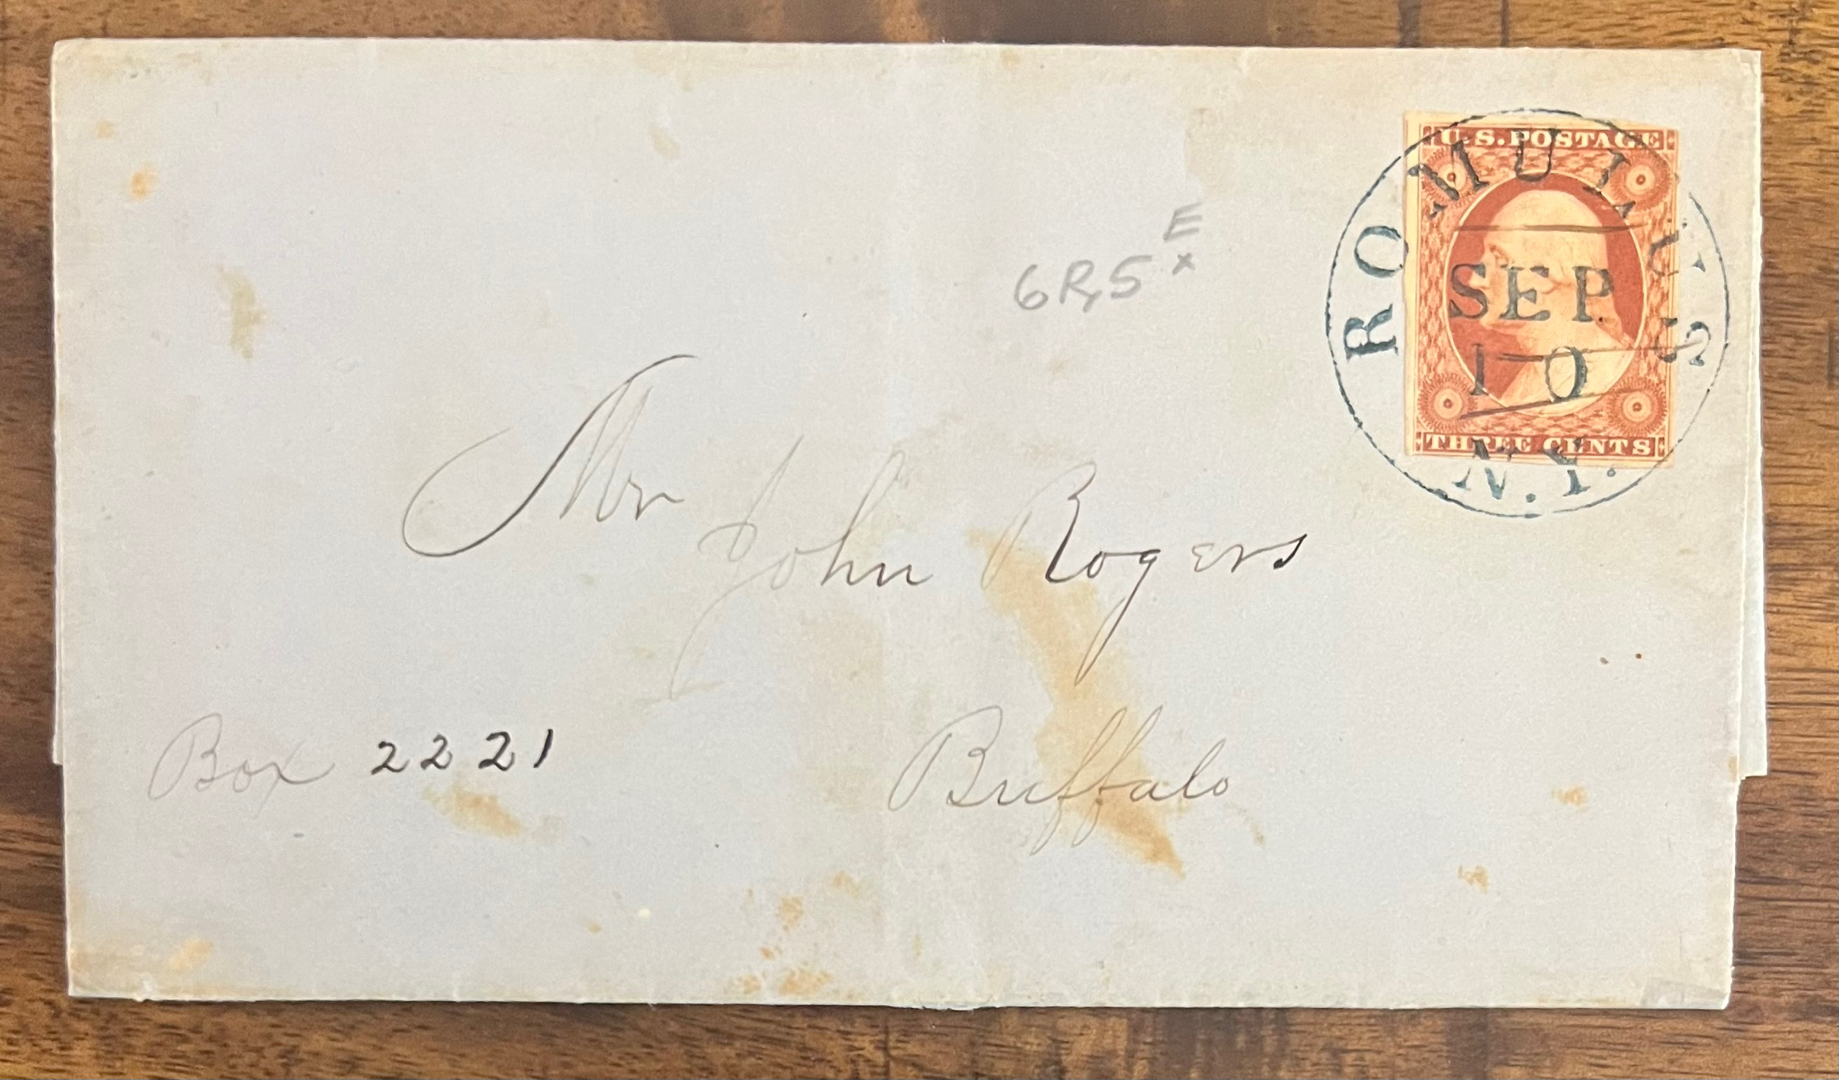 U.S. POSTAGE
ROMULUS
SEP
10
N.Y.
THREE CENTS
6R,5 E
x
Mr John Rogers
Box 2221 Buffalo